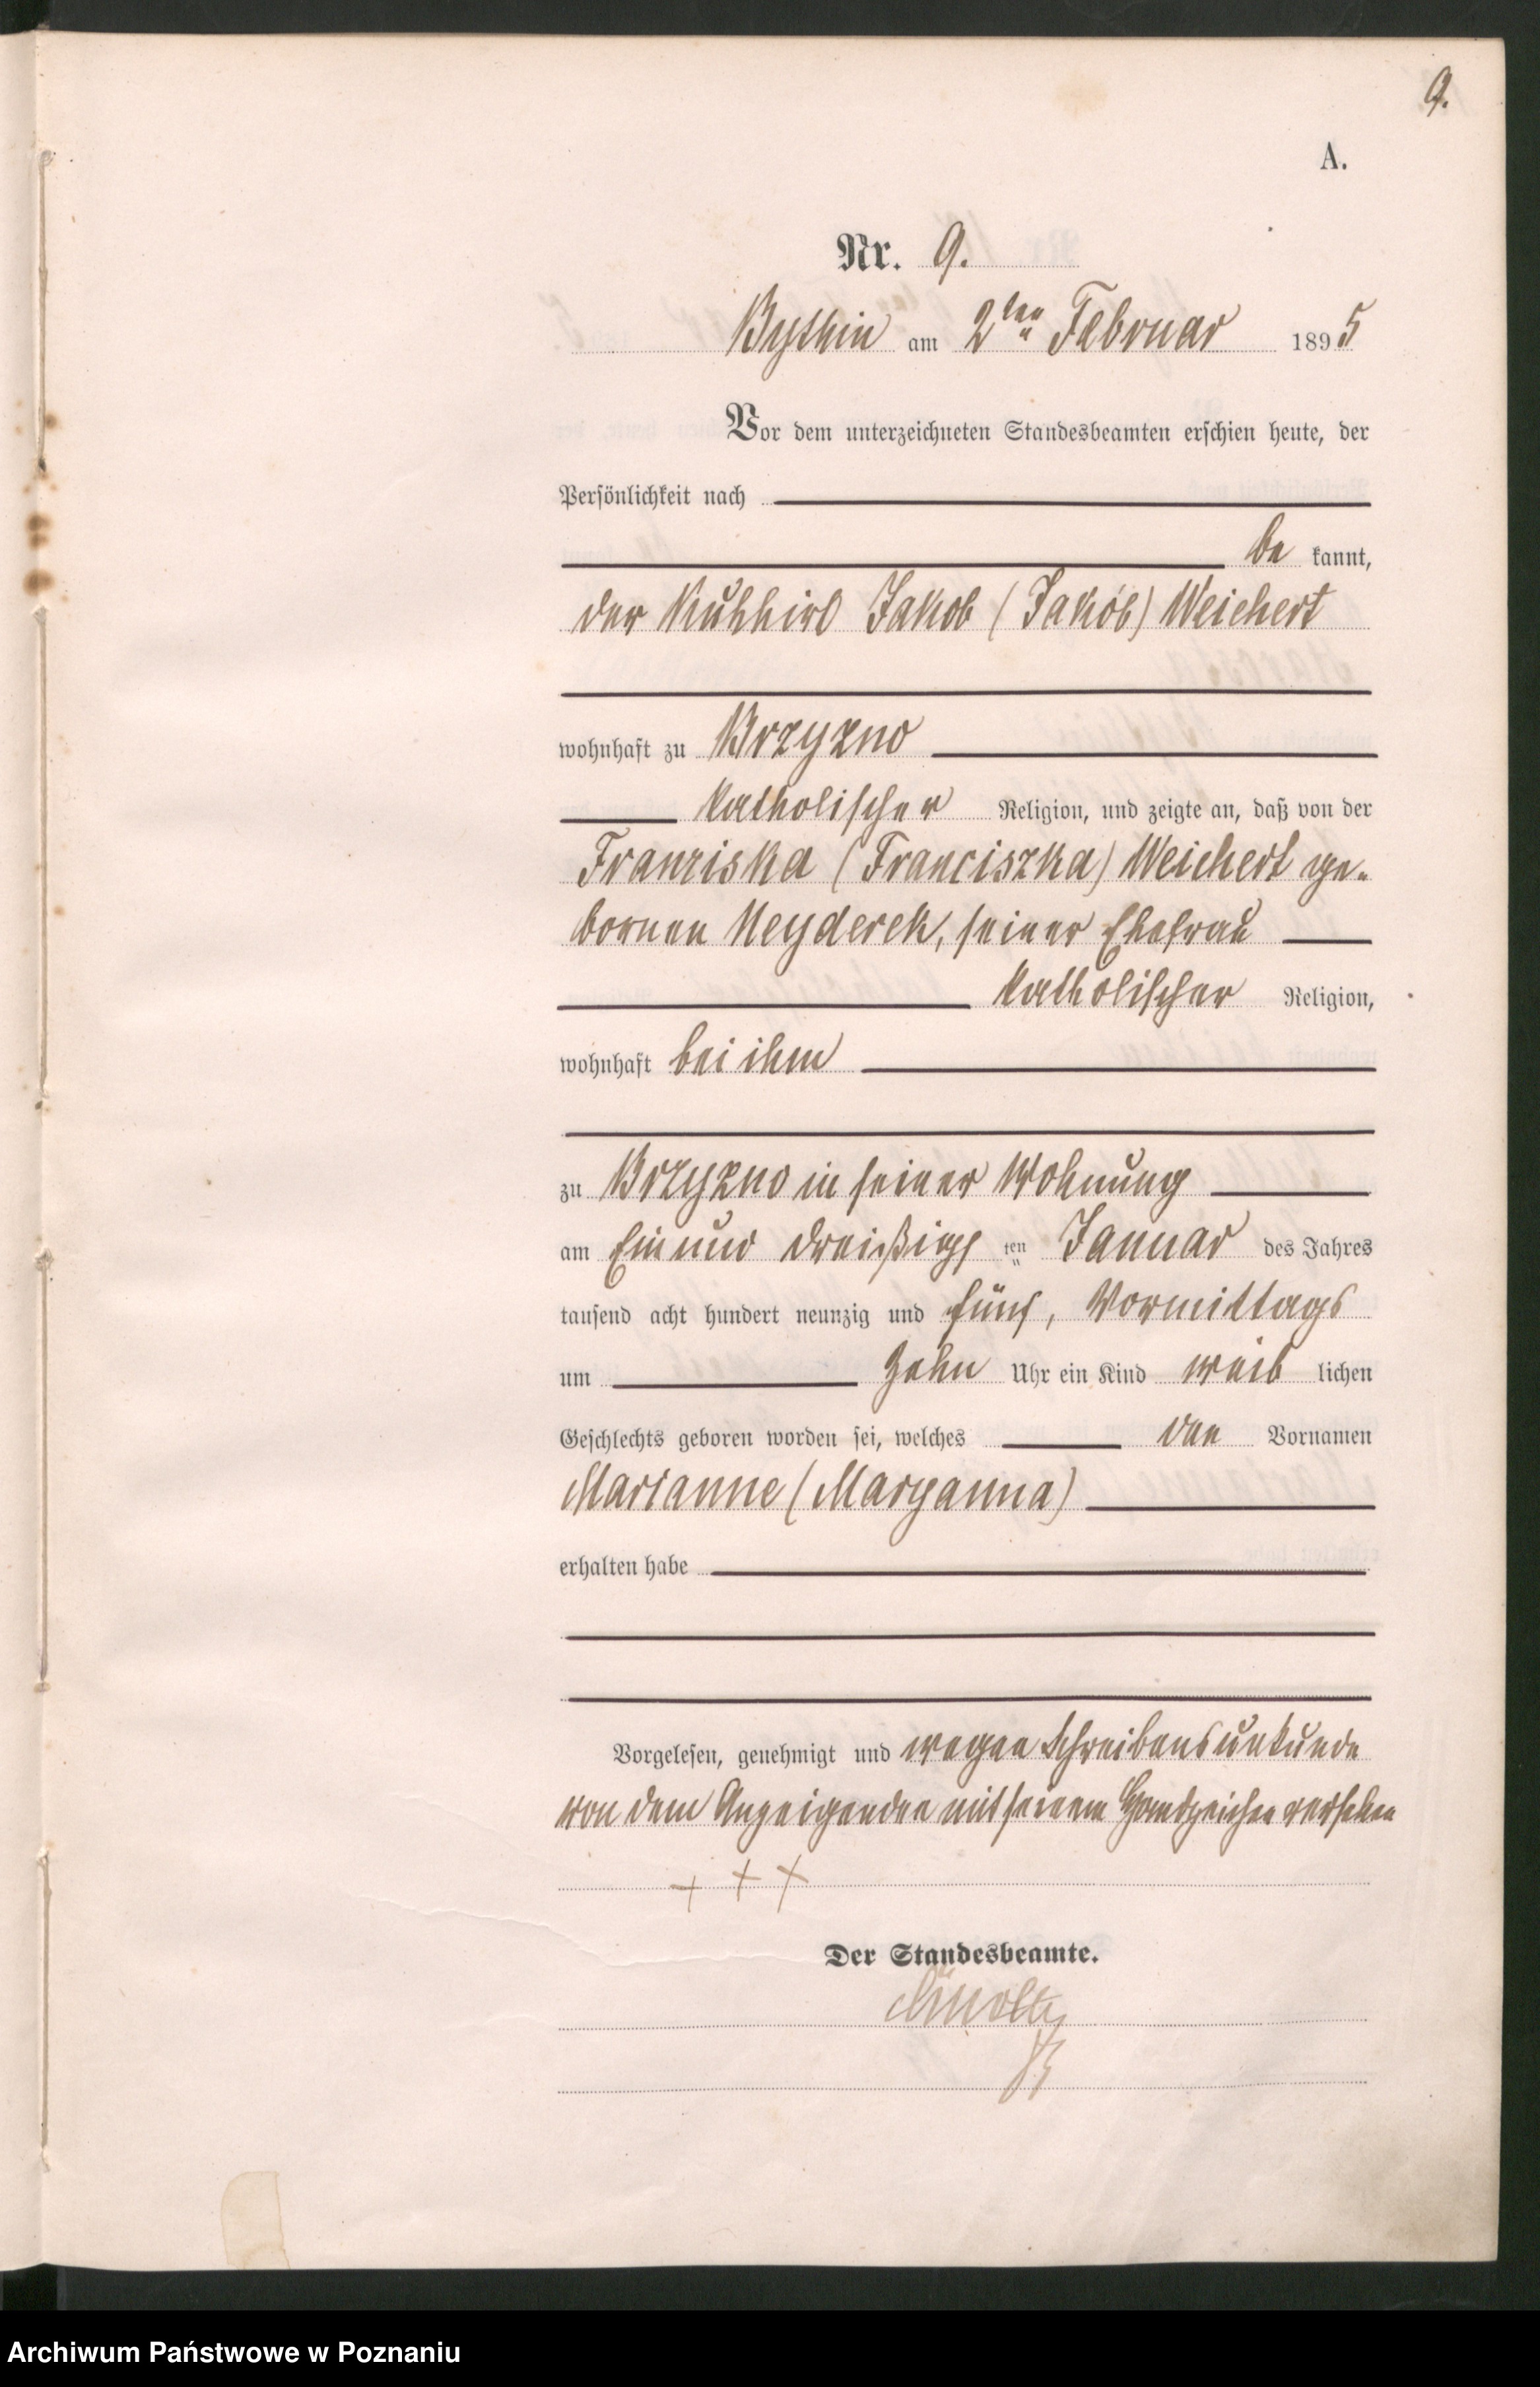 9.
A.
Nr. 9.
Bythin am 2ten Februar 1895
Vor dem unterzeichneten Standesbeamten erschien heute, der
Persönlichkeit nach
be kannt,
der Kuhhirt Jakob (Jakób) Weichert
wohnhaft zu Brzyzno
katholischer Religion, und zeigte an, daß von der
Franziska (Franciszka) Weichert ge-
bornen Neyderek, seiner Ehefrau
katholischer Religion,
wohnhaft bei ihm
zu Brzyzno in seiner Wohnung
am Ein und dreißigs ten Januar des Jahres
tausend acht hundert neunzig und fünf, Vormittags
um zehn Uhr ein Kind weib lichen
Geschlechts geboren worden sei, welches den Vornamen
Marianne (Maryanna)
erhalten habe
Vorgelesen, genehmigt und wegen Schreibensunkunde
von dem Anzeigenden mit seinem Handzeichen versehen
+ + +
Der Standesbeamte.
Archiwum Państwowe w Poznaniu